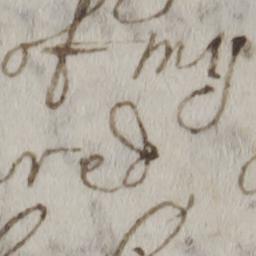 of my
red